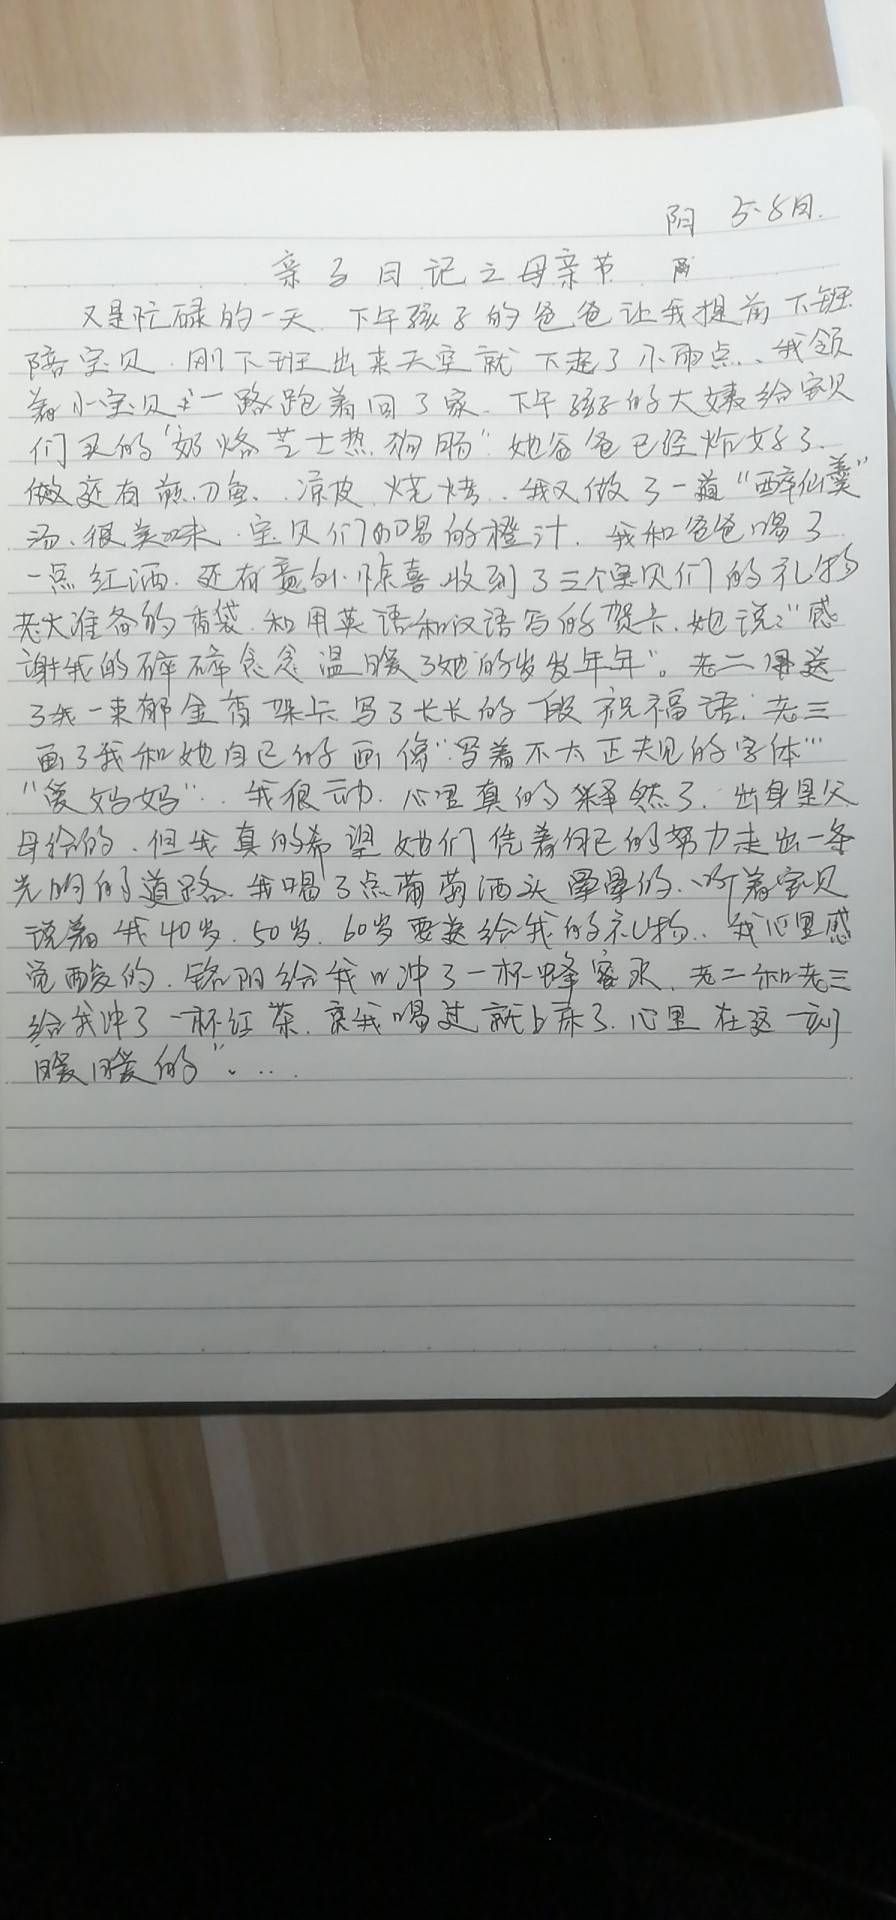 阴 5.8日.
亲子日记之母亲节 雨
又是忙碌的一天.下午孩子的爸爸让我提前下班
陪宝贝.刚下班出来天空就下起了小雨点、我领
着小宝贝一路跑着回了家.下午孩子的大姨给宝贝
们买的“奶烙芝士热狗肠”她爸爸已经炸好了.
做还有煎刀鱼、凉皮 烧烤..我又做了一道“醉仙羹”
汤、很美味.宝贝们喝的橙汁.我和爸爸喝了
一点红酒.还有意外惊喜 收到了三个宝贝们的礼物
老大准备的香袋.和用英语和汉语写的贺卡.她说:“感
谢我的碎碎念念温暖了她的岁岁年年”。老二送
了我一束郁金香 贺卡写了长长的一段祝福语.老三
画了我和她自己的画像“写着不太正规的字体”
“爱妈妈”..我很动.心里真的释然了.出身是父
母给的.但我真的希望她们凭着自己的努力走出一条
光明的道路.我喝了点葡萄酒头晕晕的.听着宝贝
说着我40岁.50岁.60岁要送给我的礼物..我心里感
觉酸的.铭阳给我冲了一杯蜂蜜水.老二和老三
给我冲了一杯红茶.亲我喝过就上床了.心里在这一刻
暖暖的”。...